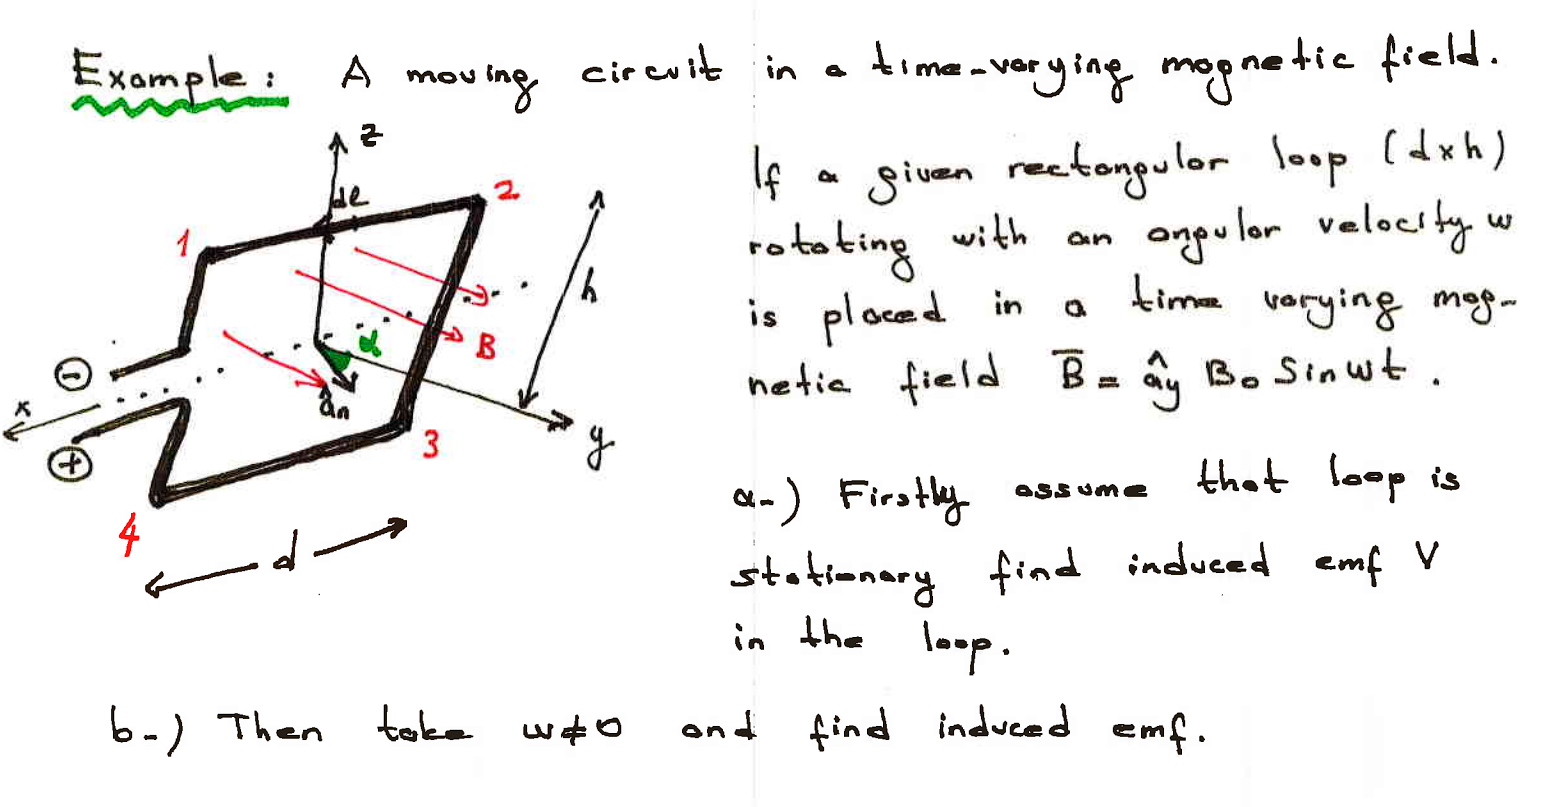 Example: A moving circuit in a time-varying magnetic field.
If a given rectangular loop (dxh)
rotating with an angular velocity w
is placed in a time varying mag-
netic field B̅ = ây Bo Sinwt .
a-) Firstly assume that loop is
stationary find induced emf V
in the loop.
b-) Then take w≠0 and find induced emf.
z
dl
2
1
h
α
B
-
ân
x
+
y
3
4
d